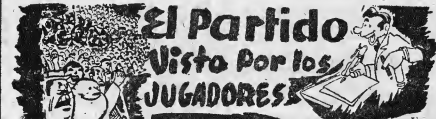 El Partido
Visto Por los
JUGADORES